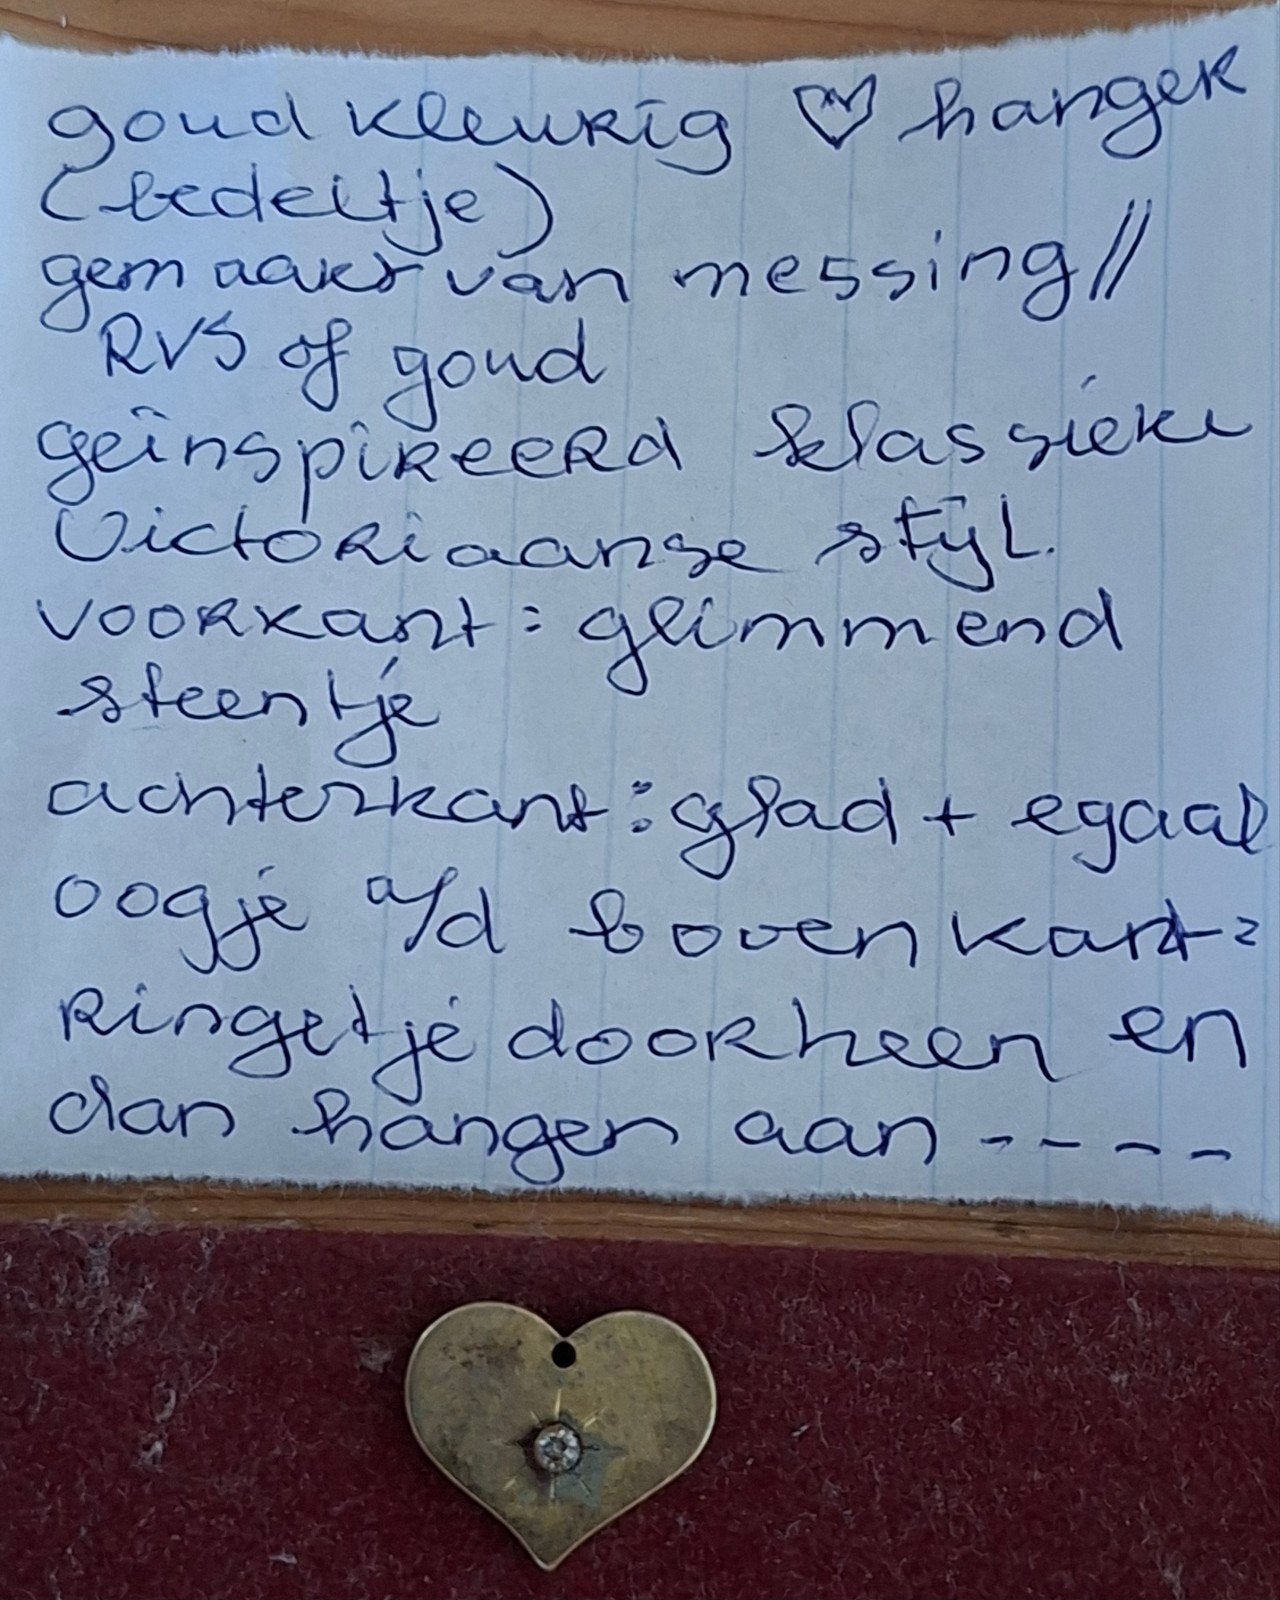 goudkleurig ♡ hanger
(bedeltje)
gemaakt van messing//
RVS of goud
geïnspireerd klassieke
Victoriaanse stijl.
voorkant: glimmend
steentje
achterkant: glad + egaal
oogje a/d bovenkant=
Ringetje doorheen en
dan hangen aan ----